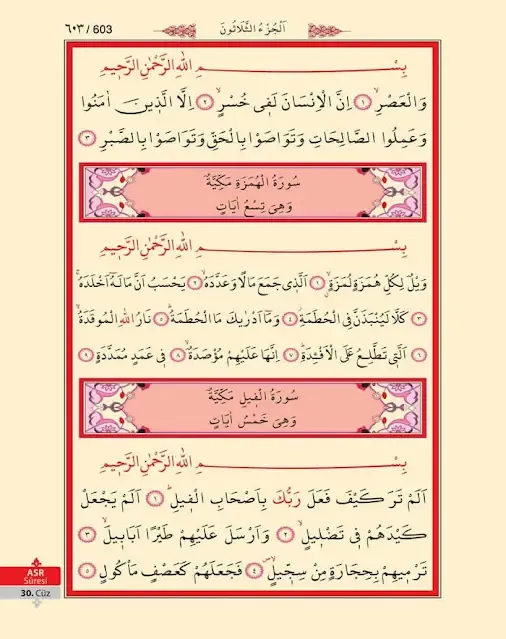 ٦٠٣ / 603
اَلْجُزْءُ الثَّلَاثُونَ
بِسْمِ اللهِ الرَّحْمٰنِ الرَّحِيمِ
وَالْعَصْرِۙ ﴿١﴾ اِنَّ الْاِنْسَانَ لَفٖي خُسْرٍۙ ﴿٢﴾ اِلَّا الَّذٖينَ اٰمَنُوا
وَعَمِلُوا الصَّالِحَاتِ وَتَوَاصَوْا بِالْحَقِّ وَتَوَاصَوْا بِالصَّبْرِ ﴿٣﴾
سُورَةُ الْهُمَزَةِ مَكِّيَّةٌ
وَهِيَ تِسْعُ اٰيَاتٍ
بِسْمِ اللهِ الرَّحْمٰنِ الرَّحِيمِ
وَيْلٌ لِكُلِّ هُمَزَةٍ لُمَزَةٍۙ ﴿١﴾ اَلَّذٖي جَمَعَ مَالًا وَعَدَّدَهُۙ ﴿٢﴾ يَحْسَبُ اَنَّ مَالَهُٓ اَخْلَدَهُۚ
﴿٣﴾ كَلَّا لَيُنْبَذَنَّ فِي الْحُطَمَةِۘ ﴿٤﴾ وَمَٓا اَدْرٰيكَ مَا الْحُطَمَةُۜ ﴿٥﴾ نَارُ اللهِ الْمُوقَدَةُۙ
﴿٦﴾ اَلَّتٖي تَطَّلِعُ عَلَى الْاَفْـِٔدَةِۜ ﴿٧﴾ اِنَّهَا عَلَيْهِمْ مُؤْصَدَةٌۙ ﴿٨﴾ فٖي عَمَدٍ مُمَدَّدَةٍ ﴿٩﴾
سُورَةُ الْفٖيلِ مَكِّيَّةٌ
وَهِيَ خَمْسُ اٰيَاتٍ
بِسْمِ اللهِ الرَّحْمٰنِ الرَّحِيمِ
اَلَمْ تَرَ كَيْفَ فَعَلَ رَبُّكَ بِاَصْحَابِ الْفٖيلِۜ ﴿١﴾ اَلَمْ يَجْعَلْ
كَيْدَهُمْ فٖي تَضْلٖيلٍۙ ﴿٢﴾ وَاَرْسَلَ عَلَيْهِمْ طَيْرًا اَبَابٖيلَۙ ﴿٣﴾
تَرْمٖيهِمْ بِحِجَارَةٍ مِنْ سِجّٖيلٍۙ ﴿٤﴾ فَجَعَلَهُمْ كَعَصْفٍ مَأْكُولٍ ﴿٥﴾
ASR
Sûresi
30. Cüz